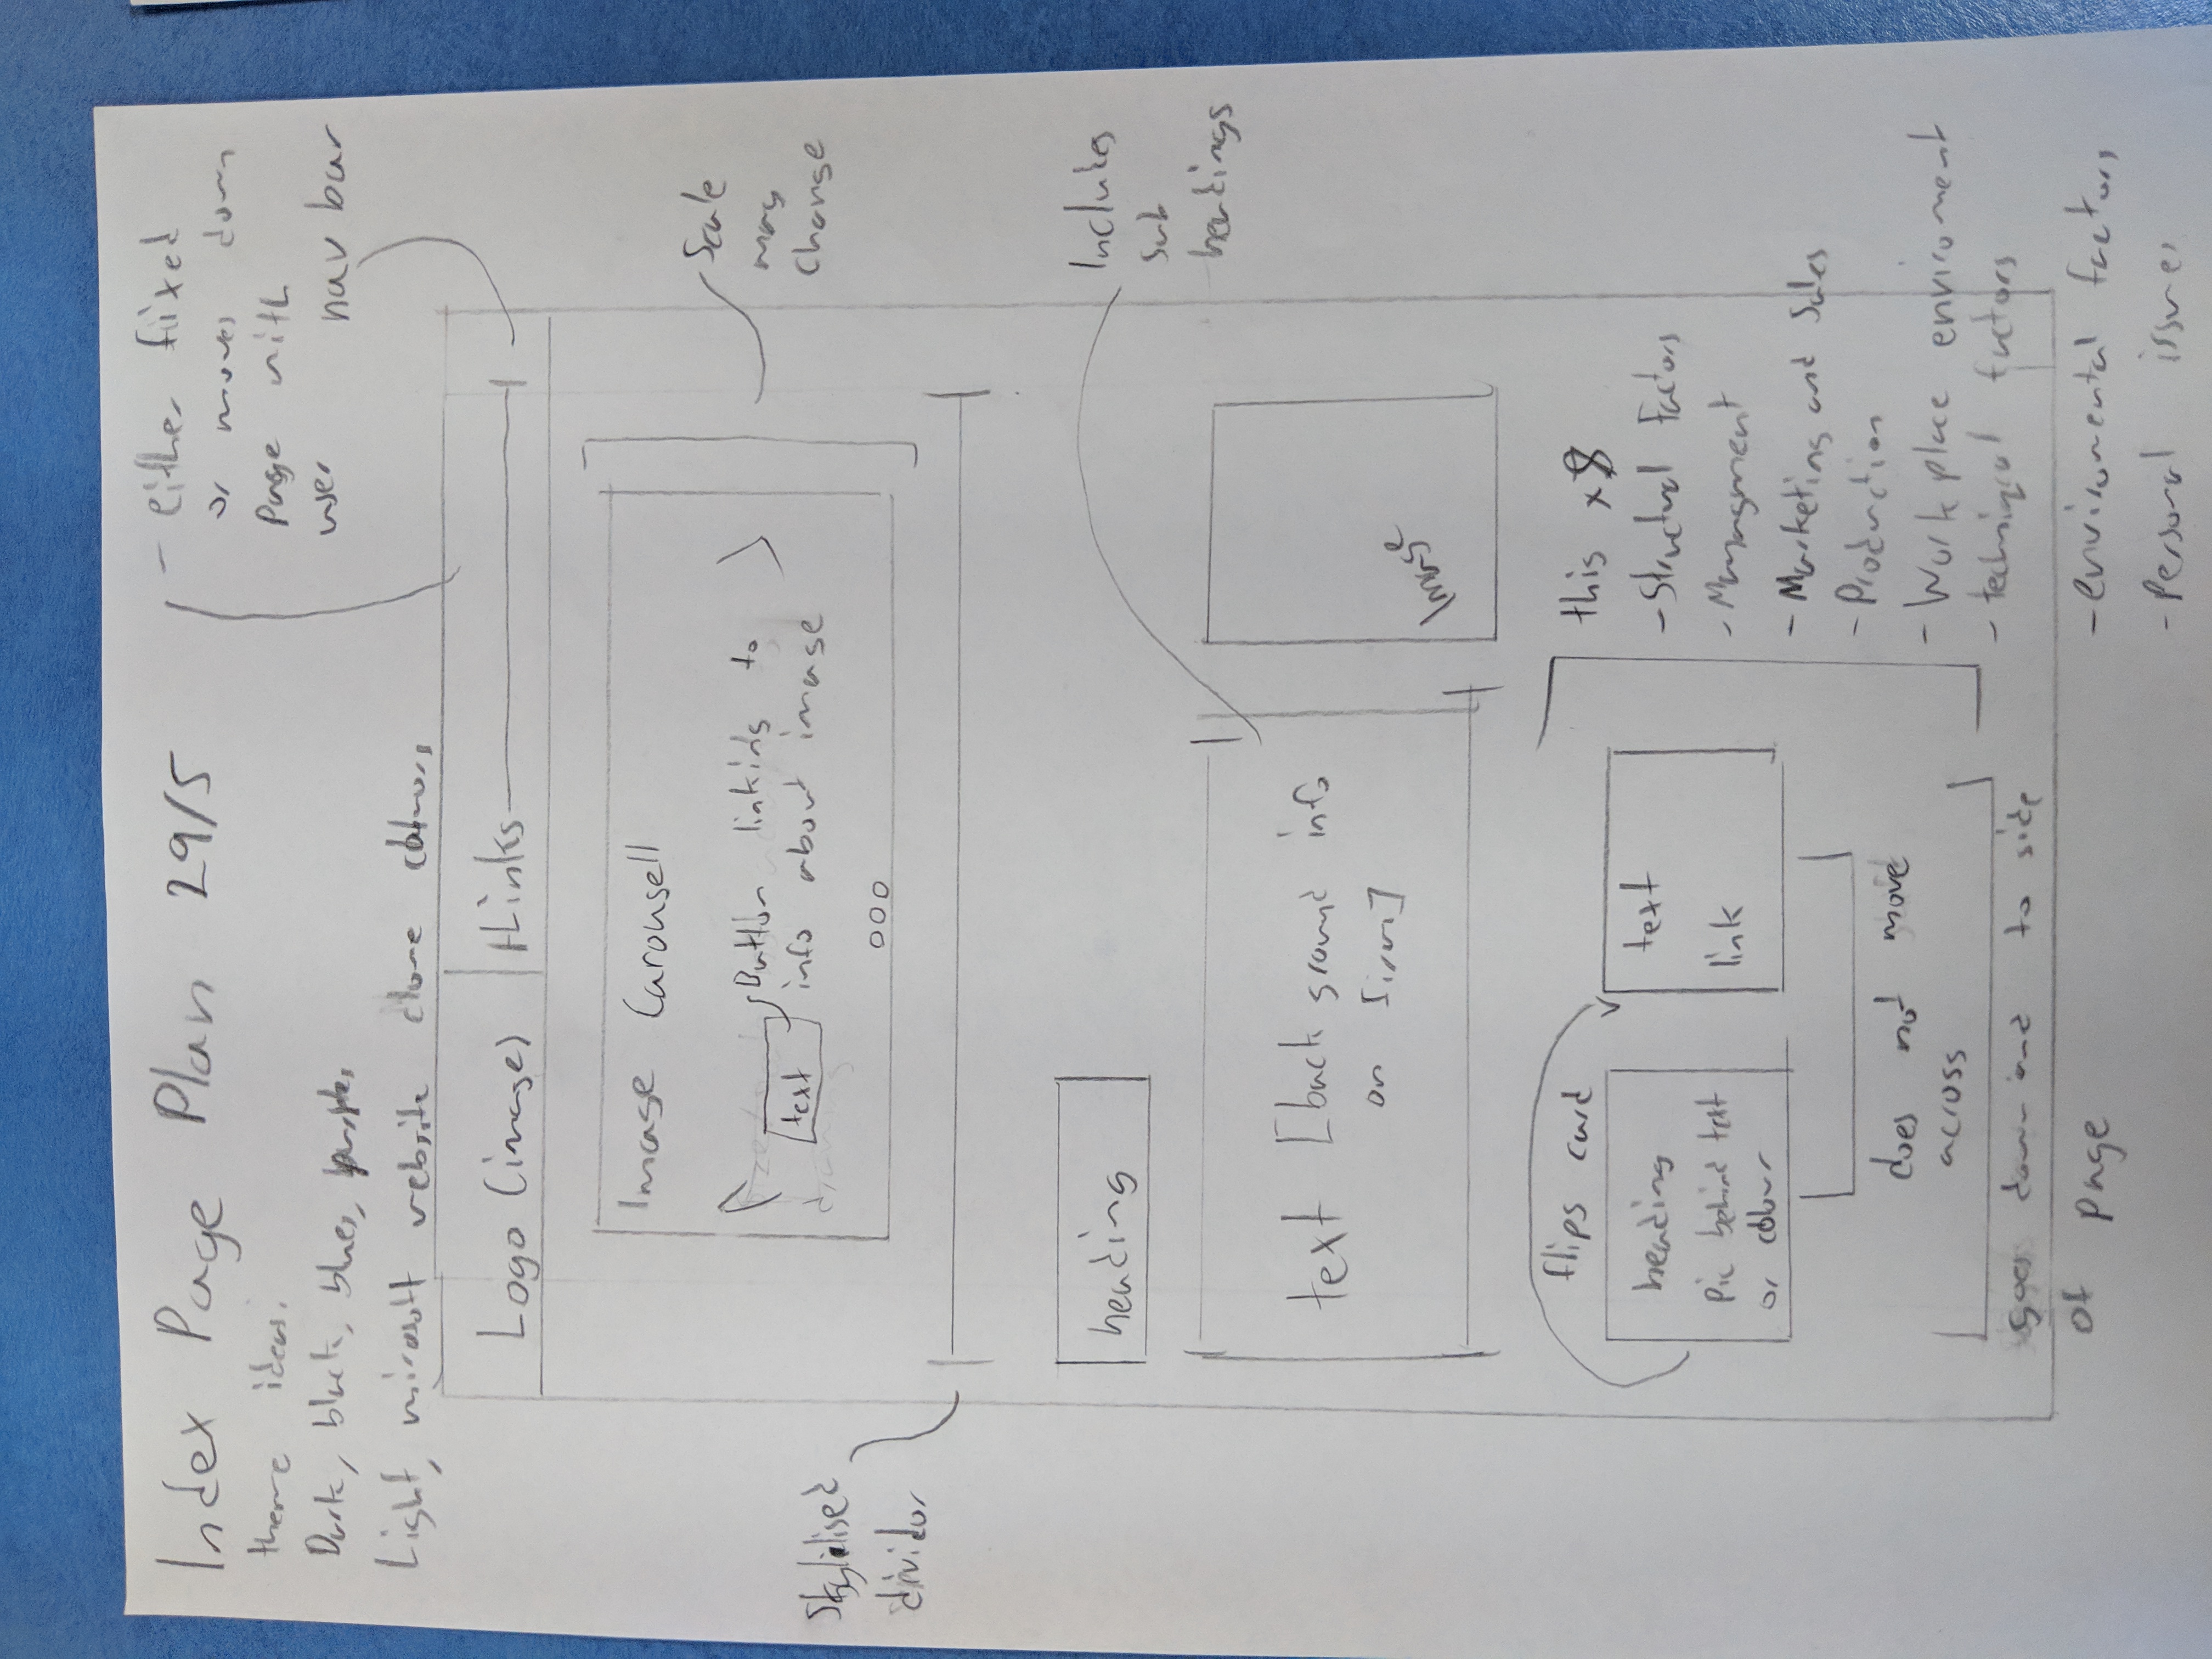 Index Page Plan 29/5
theme ideas.
Dark, black, blues, purples
Light, mirosoft website clone colours
- either fiixed
or moves down
page with
user
nav bar
Logo (image)
Links
Image Carousell
text
Button linking to
info about image
Scale
may
change
Stylilised
dividor
heading
Includes
sub
headings
text [back ground info
on firm]
Image
flips card
heading
Pic behind text
or colour
text
link
does not move
across
goes down and to side
of page
this x8
- Structual Factors
- Managment
- Marketing and Sales
- Production
- Work place enviroment
- techniqcal factors
- enviromental factors
- Personal issues